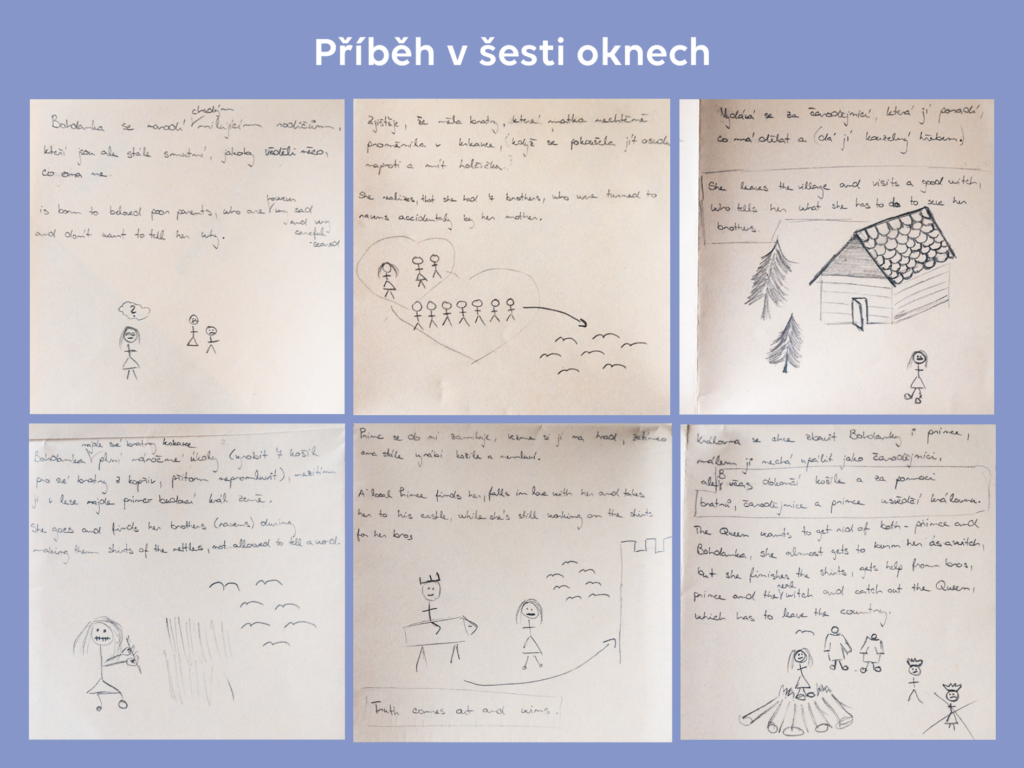 Příběh v šesti oknech
chudým
Bohdanka se narodí milujícím rodičům,
kteří jsou ale stále smutní, jakoby věděli něco,
co ona ne.
however
is born to beloved poor parents, who are sad
and very
careful
scared
and don't want to tell her why.
?
Zjišťuje, že měla bratry, které matka nechtěně
proměnila v krkavce, když se pokoušela jít osudu
naproti a mít holčičku.
She realizes, that she had 7 brothers, who were turned to
ravens accidentaly by her mother.
Vydává se za čarodejnicí, která jí poradí,
co má dělat a (dá jí kouzelný hřeben.)
She leaves the village and visits a good witch,
who tells her what she has to do to see her
brothers.
najde své bratry krkavce
Bohdanka plní náročné úkoly (vyrobit 7 košil
pro své bratry z kopřiv, přitom nepromluvit), mezitím
ji v lese najde princ budoucí král země.
She goes and finds her brothers (ravens) during
making them shirts of the nettles, not allowed to tell a word.
Princ se do ní zamiluje, vezme si ji na hrad,
ona stále vyrábí košile a nemluví.
A local Prince finds her, falls in love with her and takes
her to his castle, while she's still working on the shirts
for her bros
Truth comes out and wins.
Královna se chce zbavit Bohdanky i prince,
málem ji nechá upálit jako čarodejnici,
ale B včas dokončí košile a za pomoci
bratrů, čarodejnice a prince usvědčí královnu.
The Queen wants to get rid of both - prince and
Bohdanka, she almost gets to burn her as a witch,
but she finishes the shirts, gets help from bros,
prince and the witch and catch out the Queen,
which has to leave the country.